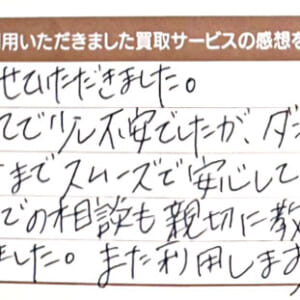 用いただきました買取サービスの感想を
せていただきました。
てで少し不安でしたが、ダ
まで スムーズで 安心して
での相談も 親切に教
ました。また利用します